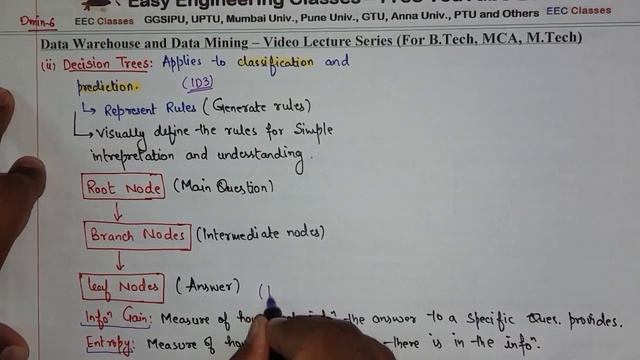 Easy Engineering Classes
Dmin-6
EEC Classes
GGSIPU, UPTU, Mumbai Univ., Pune Univ., GTU, Anna Univ., PTU and Others
EEC Classes
Data Warehouse and Data Mining – Video Lecture Series (For B.Tech, MCA, M.Tech)
(ii) Decision Trees: Applies to classification and
prediction. (ID3)
↳ Represent Rules (Generate rules)
↳ Visually define the rules for Simple
intrepretation and undestanding.
Root Node (Main Question)
Branch Nodes (Intermediate nodes)
Leaf Nodes (Answer) (
Infoⁿ Gain: Measure of infoⁿ the answer to a specific Ques. provides.
Entropy: Measure of there is in the infoⁿ.